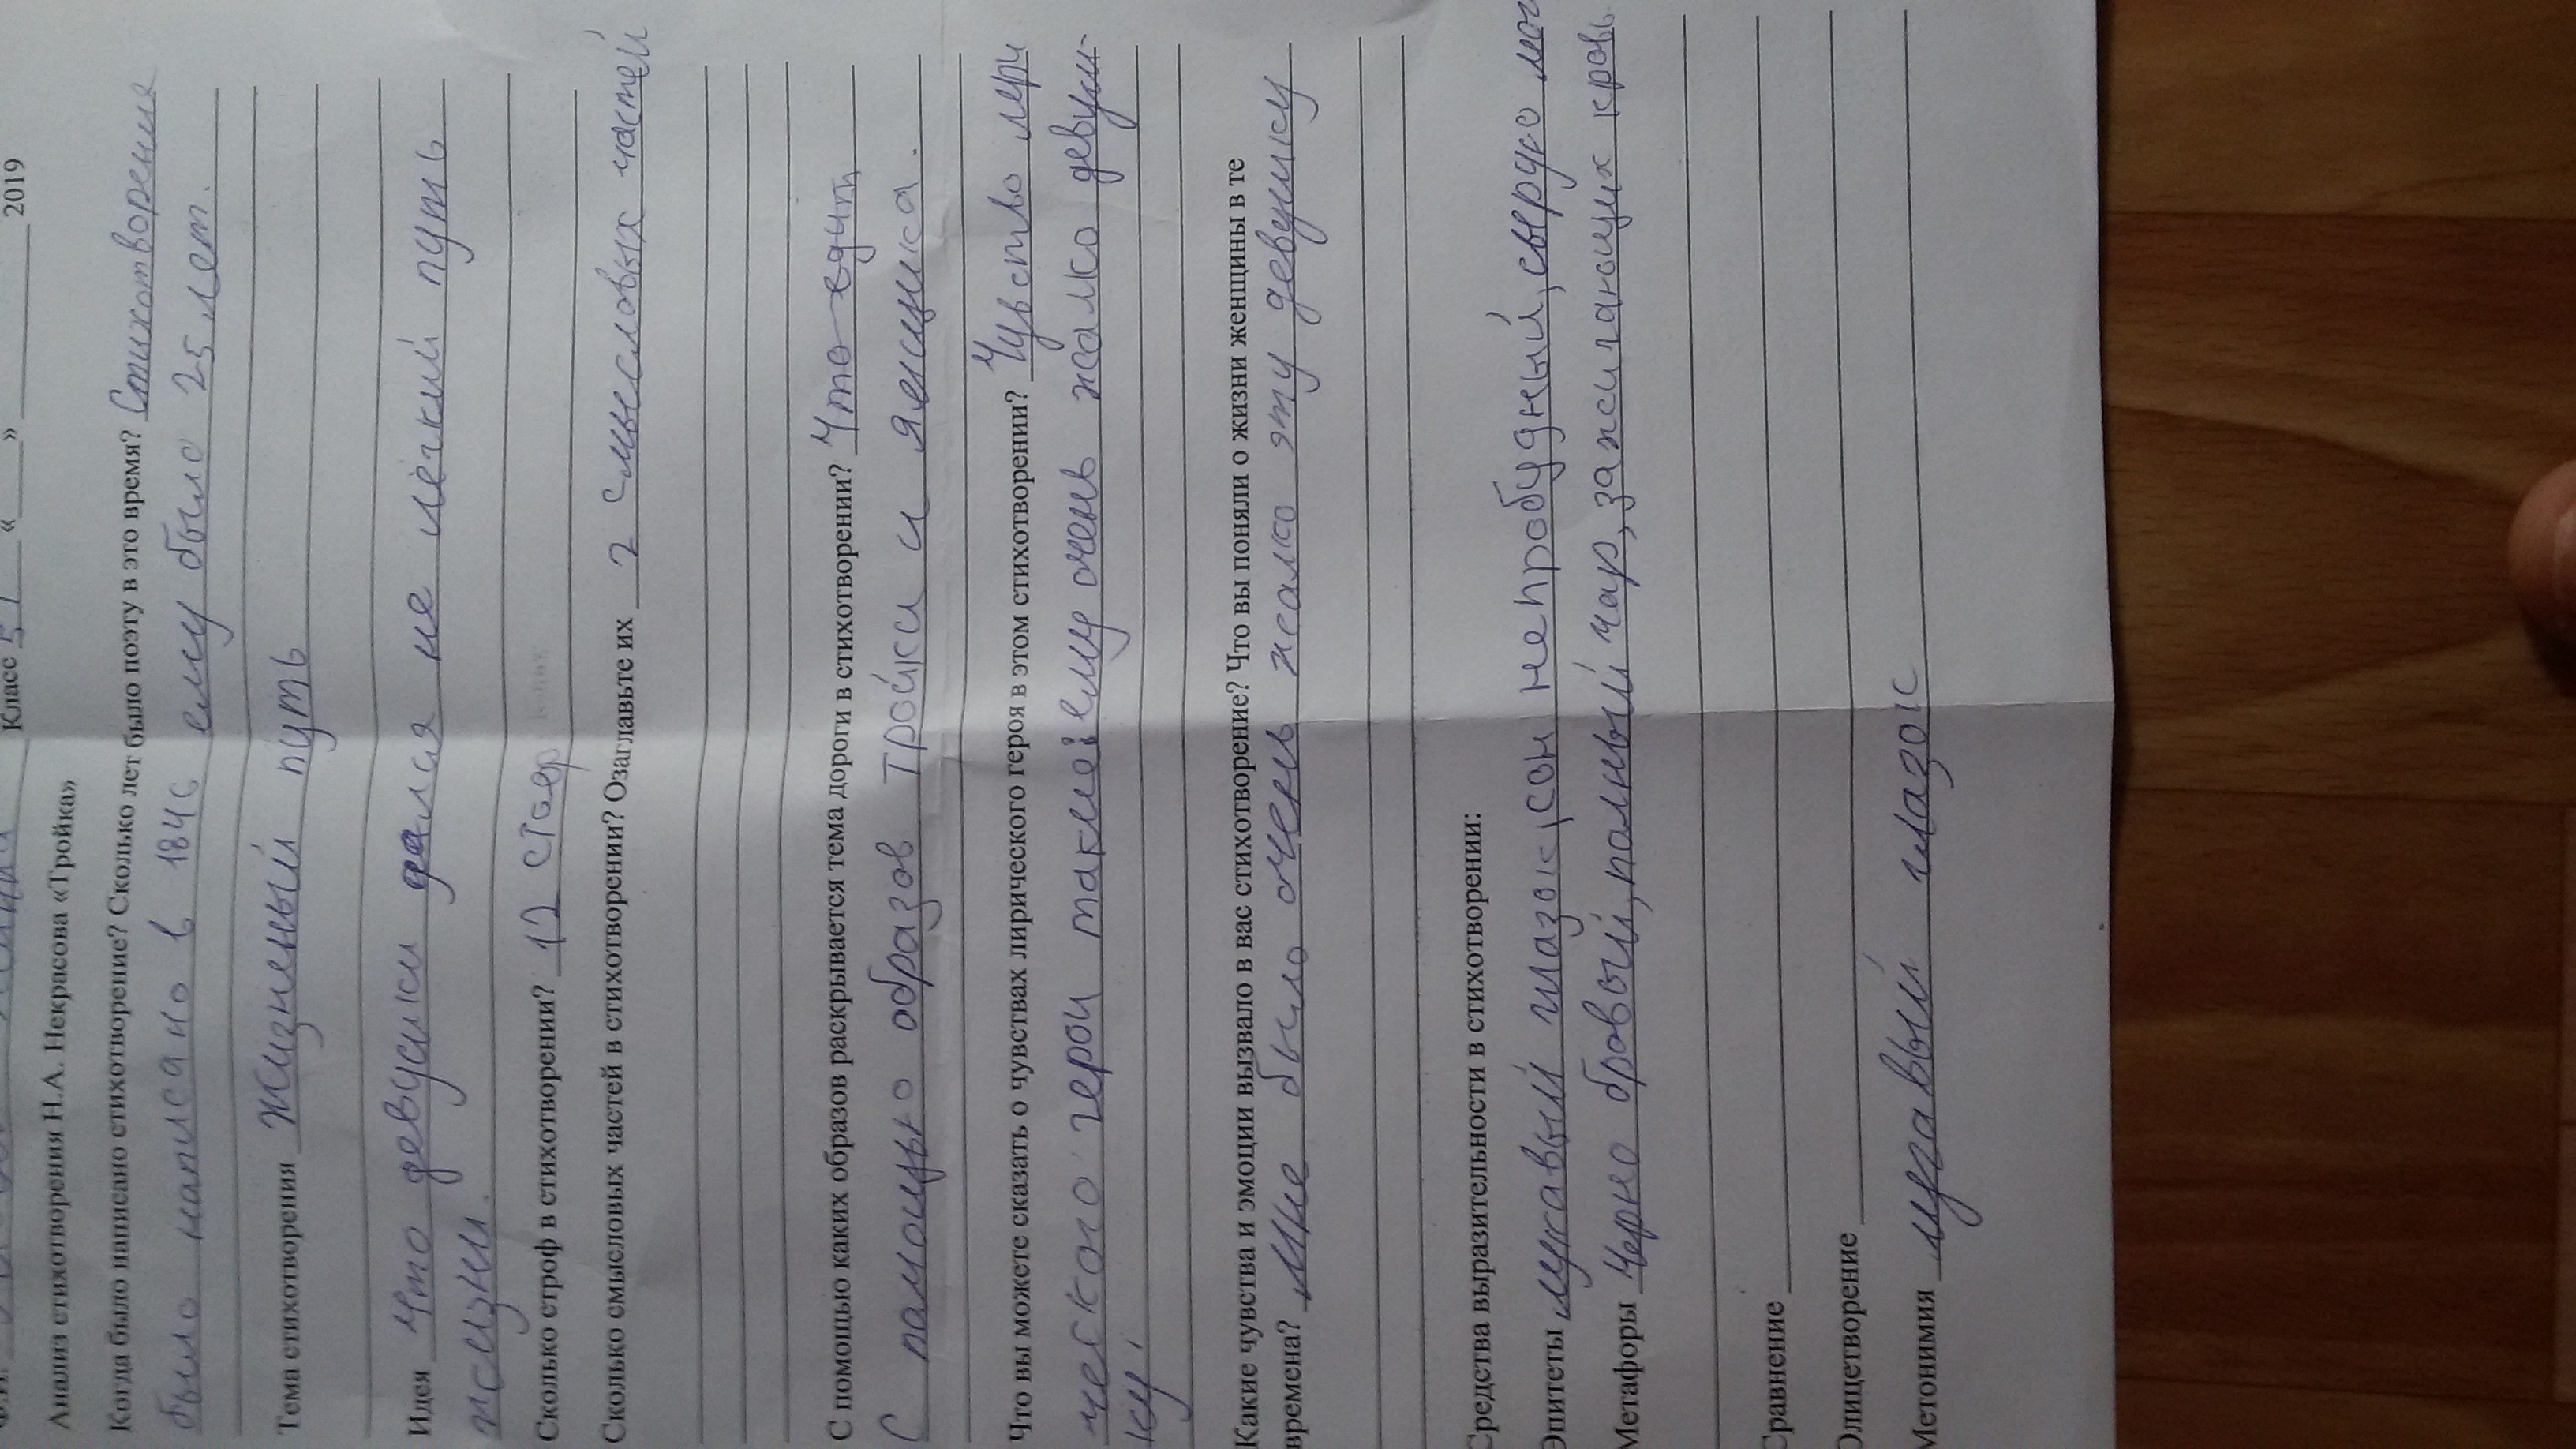 Класс 51 « » 2019
Анализ стихотворения Н.А. Некрасова «Тройка»
Когда было написано стихотворение? Сколько лет было поэту в это время? Стихотворение
было написано в 1846 ему было 25 лет.
Тема стихотворения Жизненый путь
Идея Что девушки дался не лёгкий путь
жизни.
Сколько строф в стихотворении? 12 строф
Сколько смысловых частей в стихотворении? Озаглавьте их 2 смысловых частей
С помощью каких образов раскрывается тема дороги в стихотворении? Что едит
С помощью образов тройки и ямщика.
Что вы можете сказать о чувствах лирического героя в этом стихотворении? Чувство лери
ческого героя такие: ему очень жалко девуш-
ку.
Какие чувства и эмоции вызвало в вас стихотворение? Что вы поняли о жизни женщины в те
времена? Мне было очень жалко эту девушку
Средства выразительности в стихотворении:
Эпитеты лукавый глазок, сон непробудный, сырую мог
Метафоры Черно бровый, полный чар, зажигающих кровь.
Сравнение
Олицетворение
Метонимия лукавый глазок